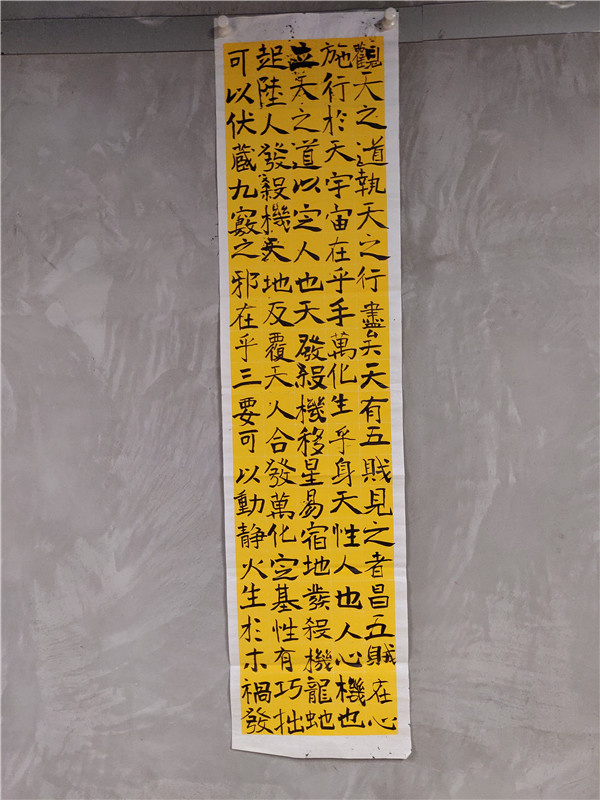 觀天之道執天之行盡矣天有五賊見之者昌五賊在心
施行於天宇宙在乎手萬化生乎身天性人也人心機也
立天之道以定人也天發殺機移星易宿地發殺機龍虵
起陸人發殺機天地反覆天人合發萬化定基性有巧拙
可以伏藏九竅之邪在乎三要可以動靜火生於木禍發